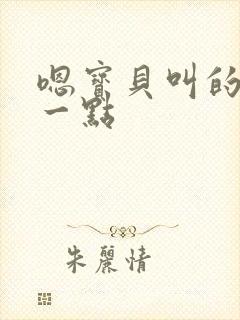 嗯寶貝叫的
一點
朱麗情